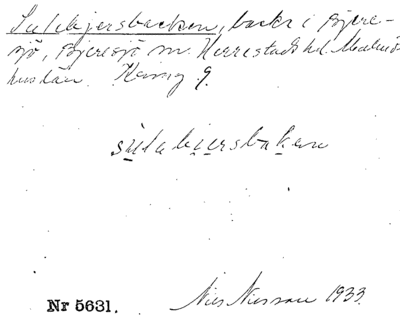 Sulebjersbacken, backe i Bjere-
sjö, Bjeresjö sn. Herrestads hd. Malmö-
hus län. Hemg 9.
sulabjersbaken
Nils Nilsson 1933.
Nr 5631.